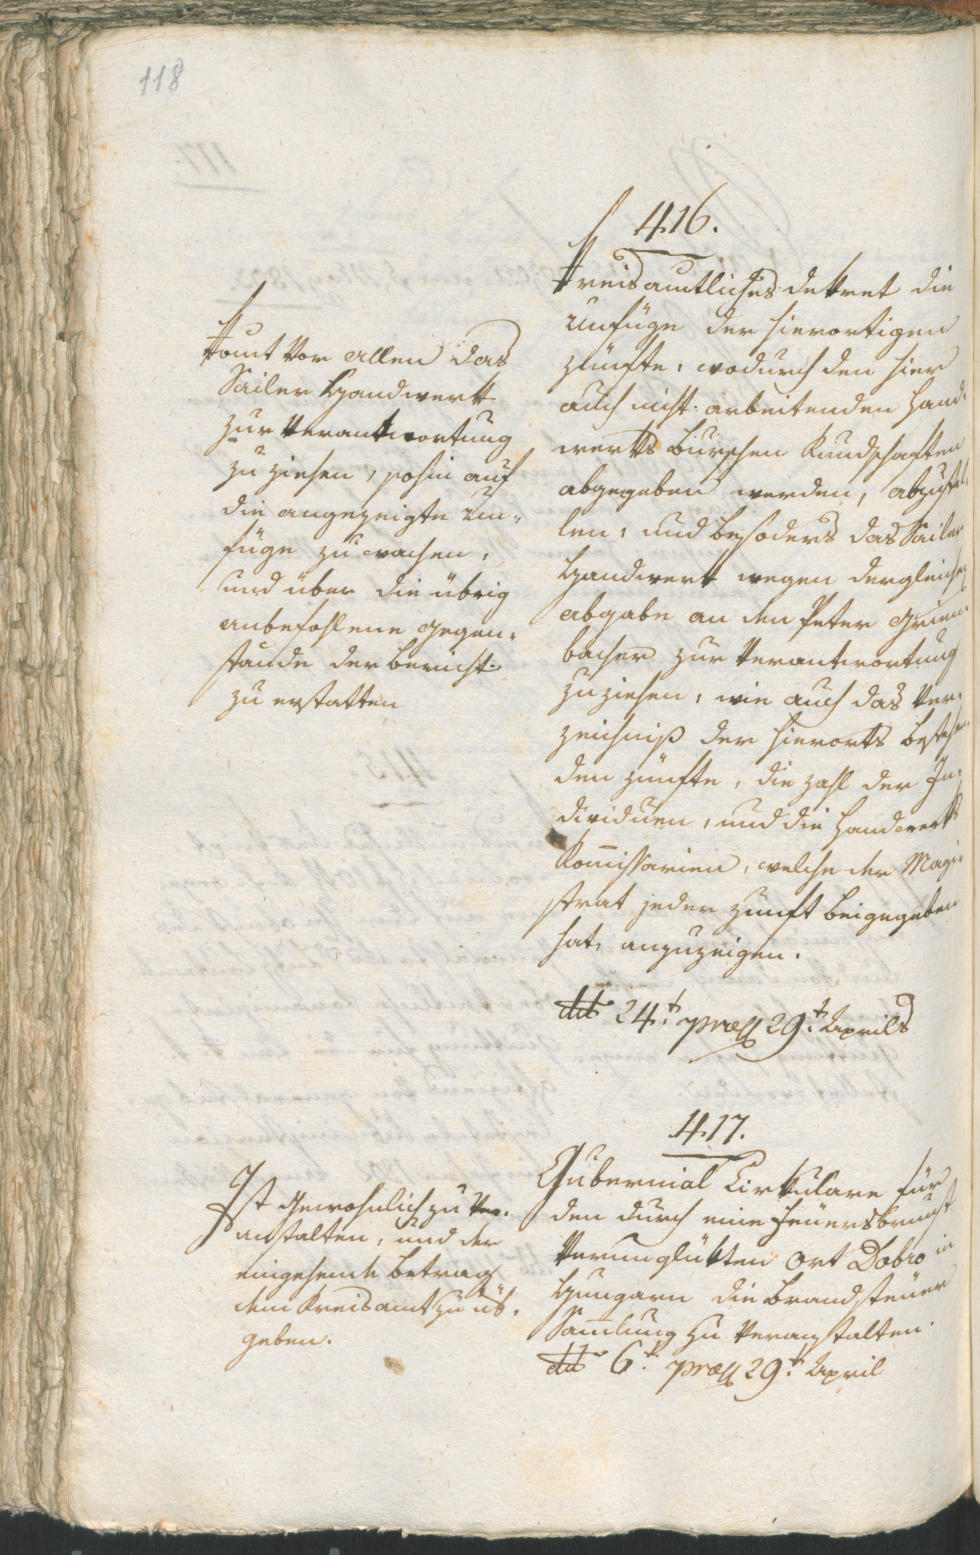 118
416.
Kreisamtliches Dekret die
Unfüge der hierortigen
Zünfte, wodurch den hier
auch nicht arbeitenden Hand-
werks Burschen Kundschaften
abgegeben werden, abzustel-
len, und besoders das Sailer
Handwerk wegen dergleichen
abgabe an den Peter Grien-
bacher zur Verantwortung
zuziehen, wie auch das Ver-
zeichniß der hierorts bestehen-
den Zünfte, die Zahl der In-
dividuen, und die Handwerks
Kom̄issarien, welche der Magi-
strat jeder Zunft beigegeben
hat, anzuzeigen.
ddto 24.t præs 29.t Aprils
Kömt vor allen das
Sailer Handwerk
zur Verantwortung
zu ziehen, sohin auf
die angezeigte Un-
füge zu wachen,
und über die übrig
anbefohlene Gegen-
stände der Bericht
zu erstatten
417.
Gubernial Cirkulare für
den durch eine Feüersbrunst
Verunglükten Ort Dobro in
Hungarn die Brandsteüer
Sam̄lung zu Veranstalten.
ddto 6.t præs 29.t April
Ist Gewohnlich zu Ver-
anstalten, und der
eingehende Betrag
dem Kreisamt zu üb-
geben.